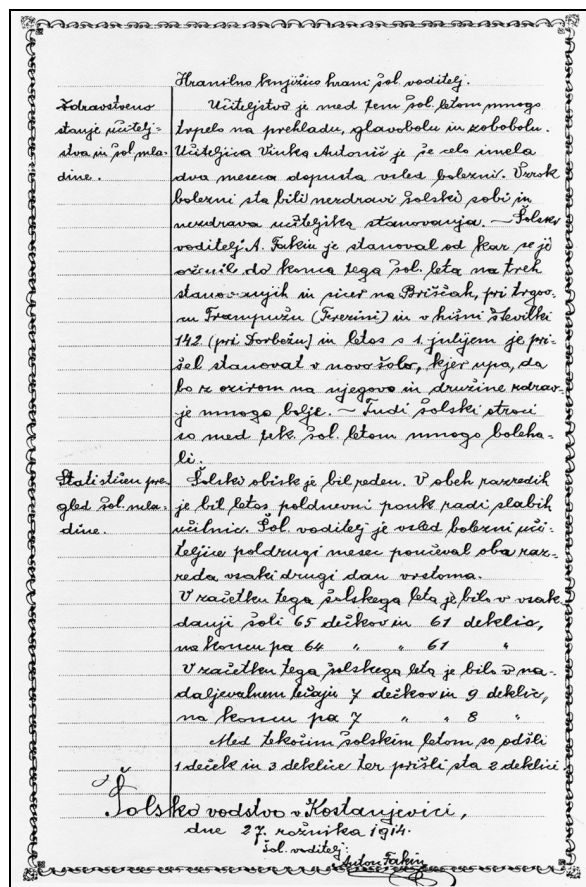 Hranilno knjižico hrani šol. voditelj.
Zdravstveno
stanje učitelj-
stva in šol. mla-
dine.
Učiteljstvo je med tem šol. letom mnogo
trpelo na prehladu, glavobolu in zobobolu.
Učiteljica Vinka Antonič je še celo imela
dva meseca dopusta vsled bolezni. Vzrok
bolezni sta bili nezdravi šolski sobi in
nezdrava učiteljska stanovanja. — Šolski
voditelj A. Fakin je stanoval od kar se je
oženil do konca tega šol. leta na treh
stanovanjih in sicer na Briščah, pri trgov-
cu Trampužu (Terezini) in v hišni številki
142 (pri Forbežu) in letos s 1. julijem je pri-
šel stanovat v novo šolo, kjer upa, da
bo z ozirom na njegovo in družine zdrav-
je mnogo bolje. — Tudi šolski otroci
so med tek. šol. letom mnogo boleha-
li.
Statističen pre-
gled šol. mla-
dine.
Šolski obisk je bil reden. V obeh razredih
je bil letos poldnevni pouk radi slabih
učilnic. Šol. voditelj je vsled bolezni uči-
teljice poldrugi mesec poučeval oba raz-
reda vsaki drugi dan vrstoma.
V začetku tega šolskega leta je bilo v vsak-
danji šoli 65 dečkov in 61 deklic,
na koncu pa 64 " " 61 "
V začetku tega šolskega leta je bilo v na-
daljevalnem tečaju 7 dečkov in 9 deklic,
na koncu pa 7 " " 8 "
Med tekočim šolskim letom so odšli
1 deček in 3 deklice ter prišli sta 2 deklici.
Šolsko vodstvo v Kostanjevici,
dne 27. rožnika 1914.
Šol. voditelj:
Anton Fakin